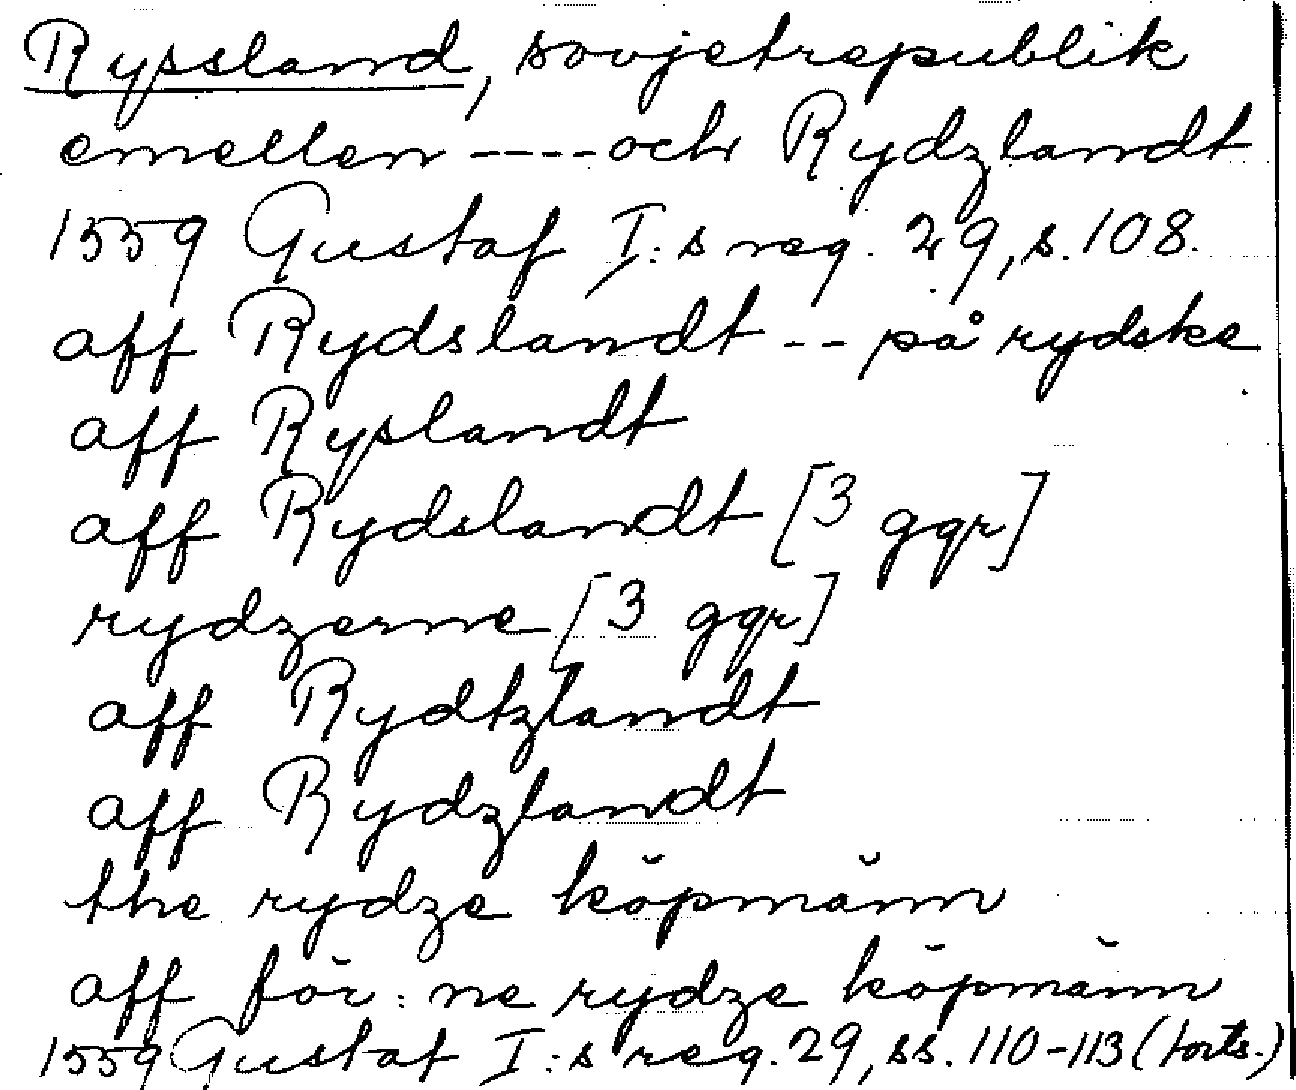 Ryssland, sovjetrepublik
emellen ---- och Rydzlandt
1559 Gustaf I:s reg. 29, s. 108.
aff Rydslandt -- på rydske
aff Ryslandt
aff Rydslandt [3 ggr]
rydzerne [3 ggr]
aff Rydtzlandt
aff Rydzlandt
the rydze köpmänn
aff för:ne rydze köpmänn
1559 Gustaf I:s reg. 29, ss. 110-113 (forts.)